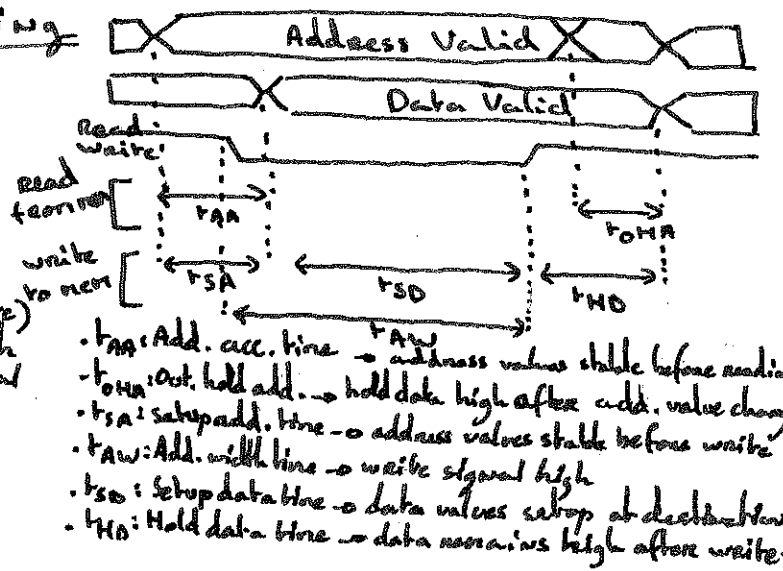 ing
Address Valid
Data Valid
Read
write
Read
from mem
tAA
tOHA
write
to mem
tSA
tSD
tHD
tAW
• tAA: Add. acc. time → address values stable before readi
• tOHA: Out. hold add. → hold data high after add. value chang
• tSA: setup add. time → address values stable before write
• tAW: Add. width time → write signal high
• tSD: Setup data time → data values setup at destination
• tHD: Hold data time → data remains high after write.